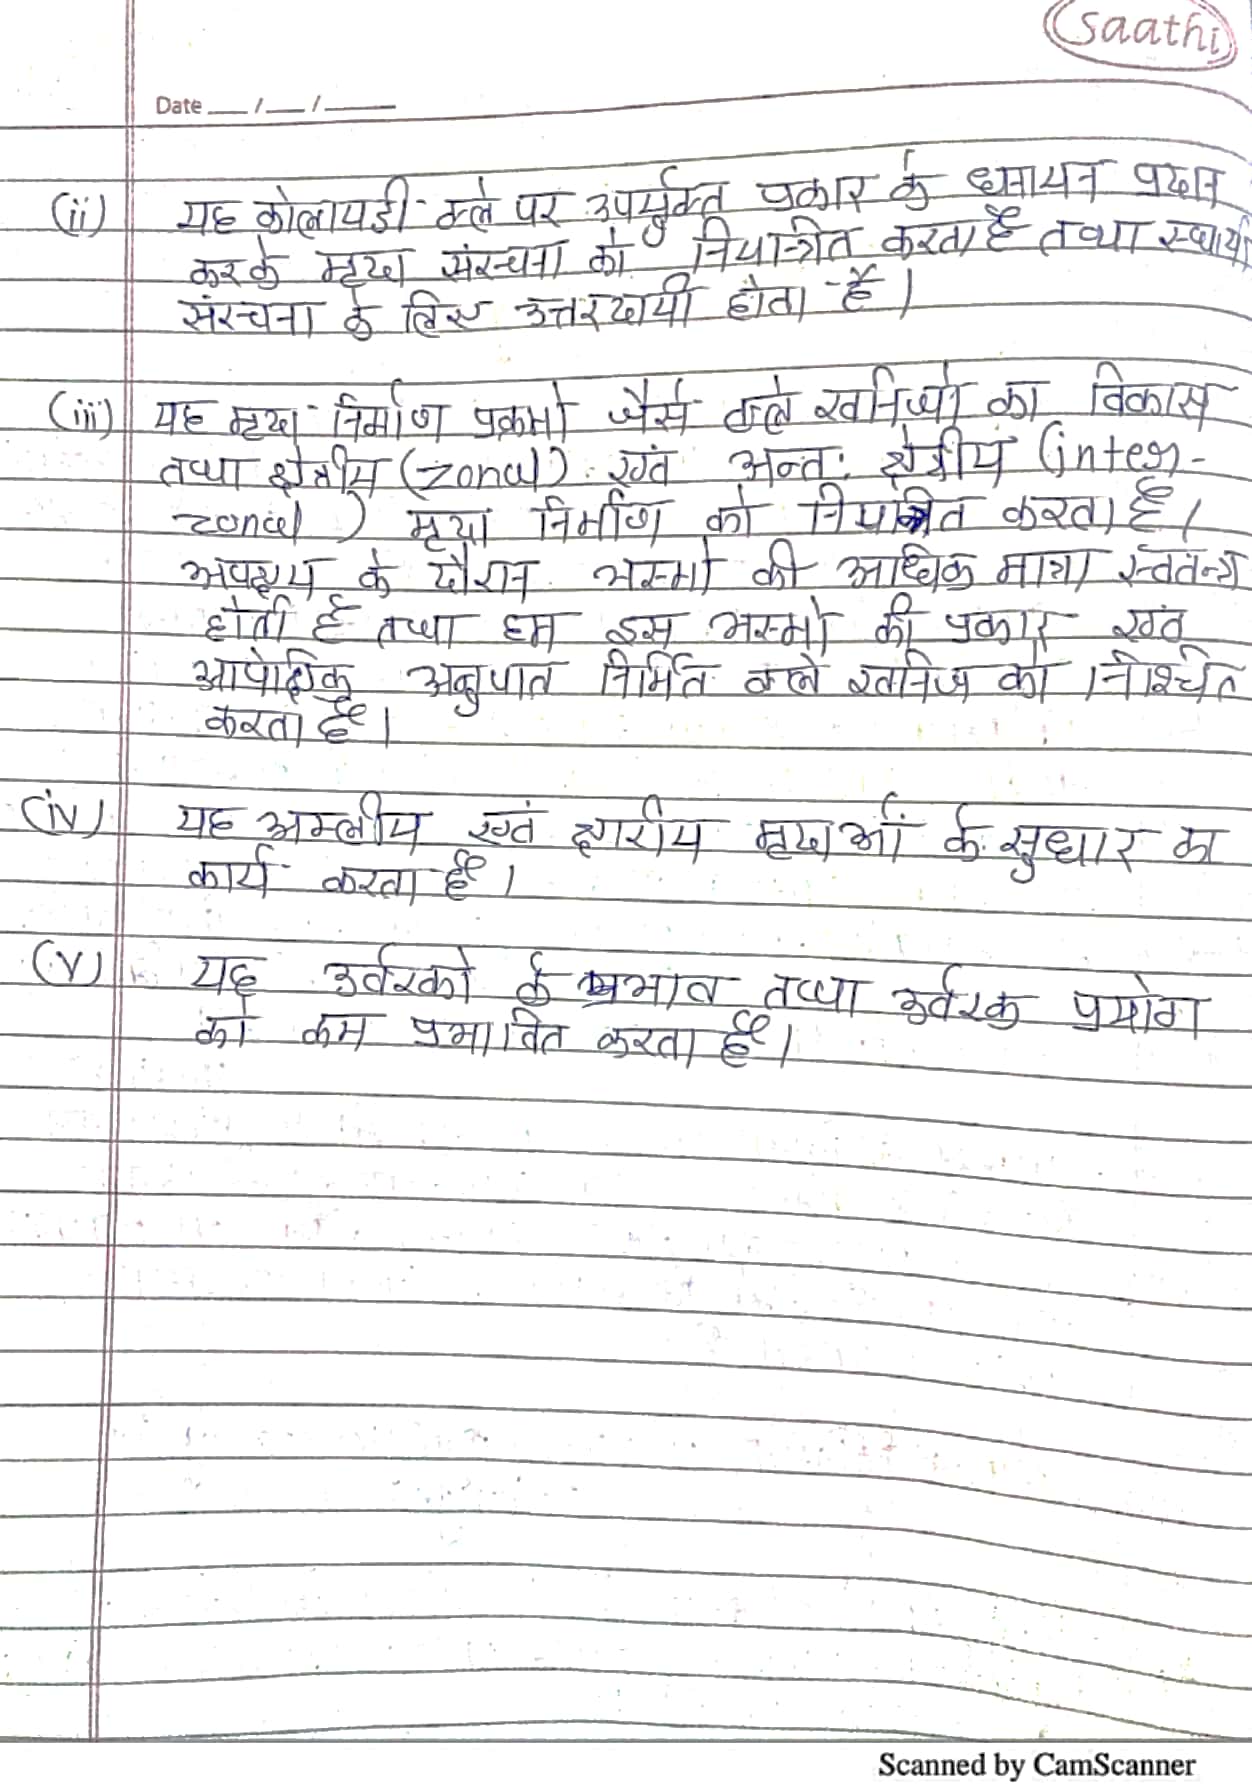 saathi
Date __/__/____
(ii) यह कोलायडी क्ले पर उपर्युक्त प्रकार के धनायन प्रदान
करके मृदा संरचना को नियन्त्रित करता है तथा स्थायी
संरचना के लिए उत्तरदायी होता है।
(iii) यह मृदा निर्माण प्रक्रमो जैसे क्ले खनिजो का विकास
तथा क्षेत्रीय (zonal) एवं अन्तः क्षेत्रीय (inter-
zonal) मृदा निर्माण को नियंत्रित करता है।
अपक्षय के दौरान भस्मो की अधिक मात्रा स्वतन्त्र
होती है तथा हम इस भस्मो की प्रकार एवं
आपेक्षिक अनुपात निर्मित क्ले खनिज को निश्चित
करता है।
(iv) यह अम्लीय एवं क्षारीय मृदाओं के सुधार का
कार्य करता है।
(v) यह उर्वरको के प्रभाव तथा उर्वरक प्रयोग
को कम प्रभावित करता है।
Scanned by CamScanner